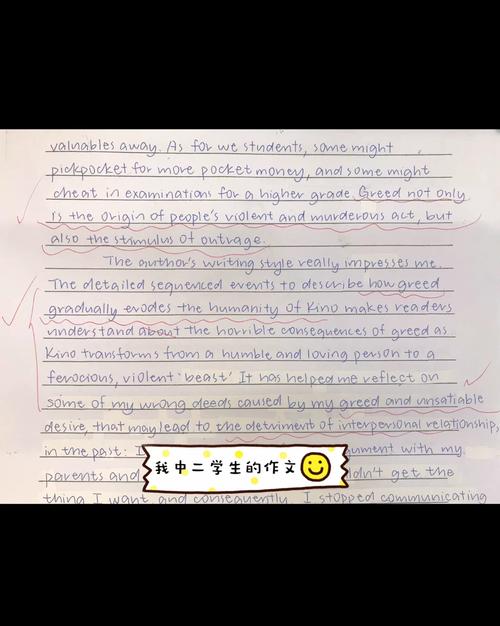 valuables away. As for we students, some might
pickpocket for more pocket money, and some might
cheat in examinations for a higher grade. Greed not only
is the origin of people's violent and murderous act, but
also the stimulus of outrage.
The author's writing style really impresses me.
The detailed sequenced events to describe how greed
gradually erodes the humanity of Kino makes readers
understand about the horrible consequences of greed as
Kino transforms from a humble and loving person to a
ferocious, violent 'beast'. It has helped me reflect on
some of my wrong deeds caused by my greed and unsatiable
desire, that may lead to the detriment of interpersonal relationship,
in the past: I gument with my
parents and dn't get the
thing I want and consequently I stopped communicating
我中二学生的作文